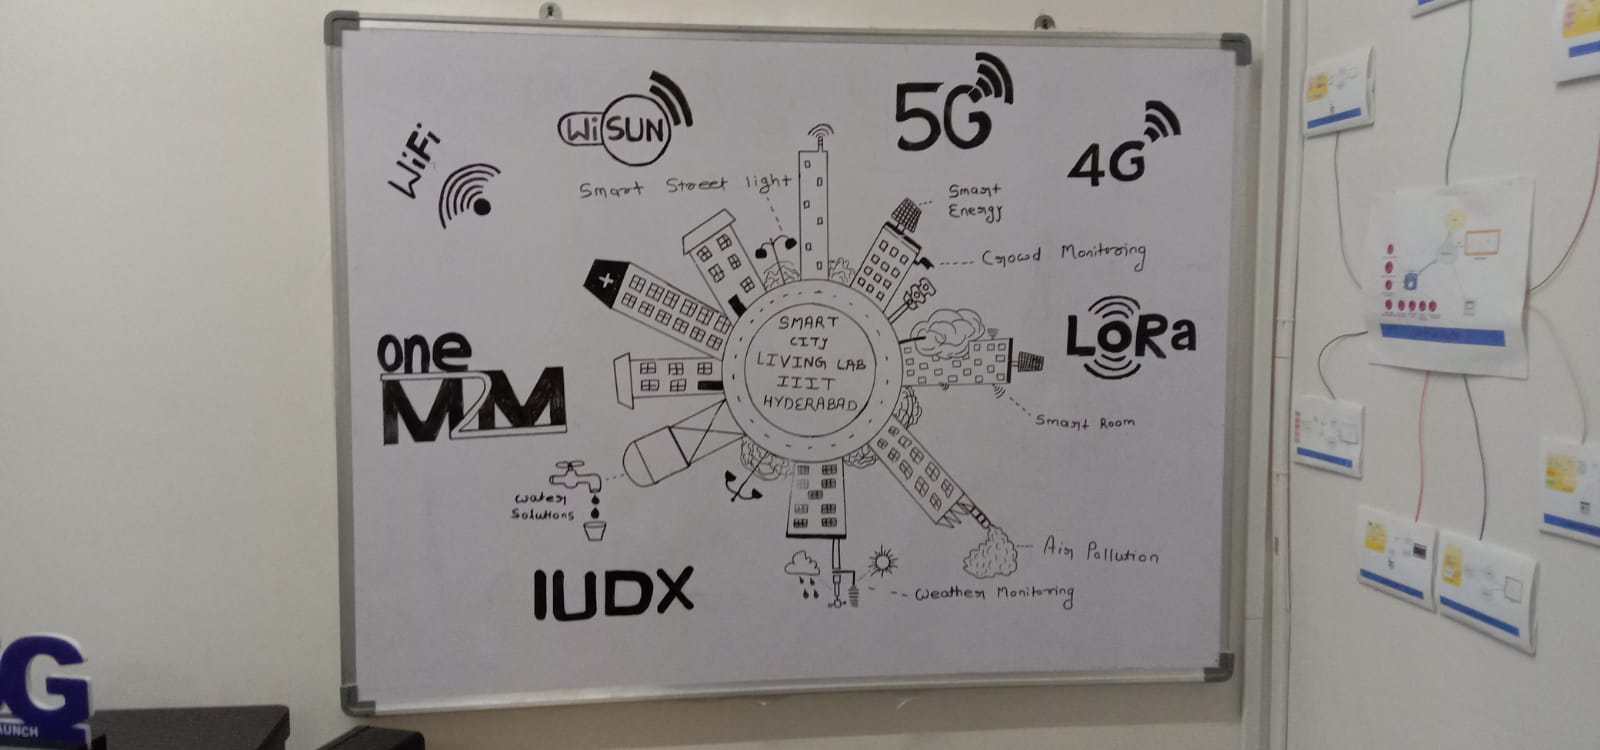 WiFi
Wi SUN
5G
4G
Smart Street light
Smart
Energy
Crowd Monitoring
SMART
CITY
LIVING LAB
IIIT
HYDERABAD
LoRa
one
M2M
Smart Room
Water
Solutions
Air Pollution
IUDX
Weather Monitoring
G
AUNCH